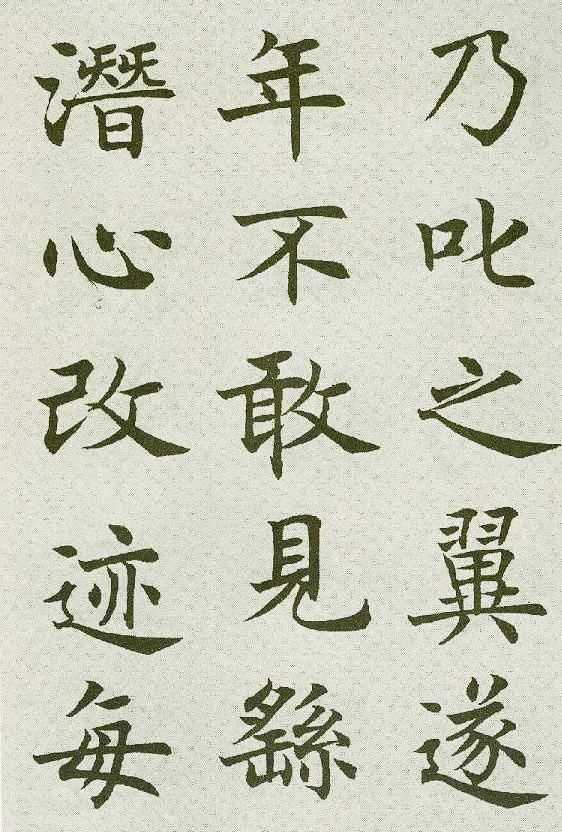 乃叱之翼遂
年不敢見繇
潛心改迹每